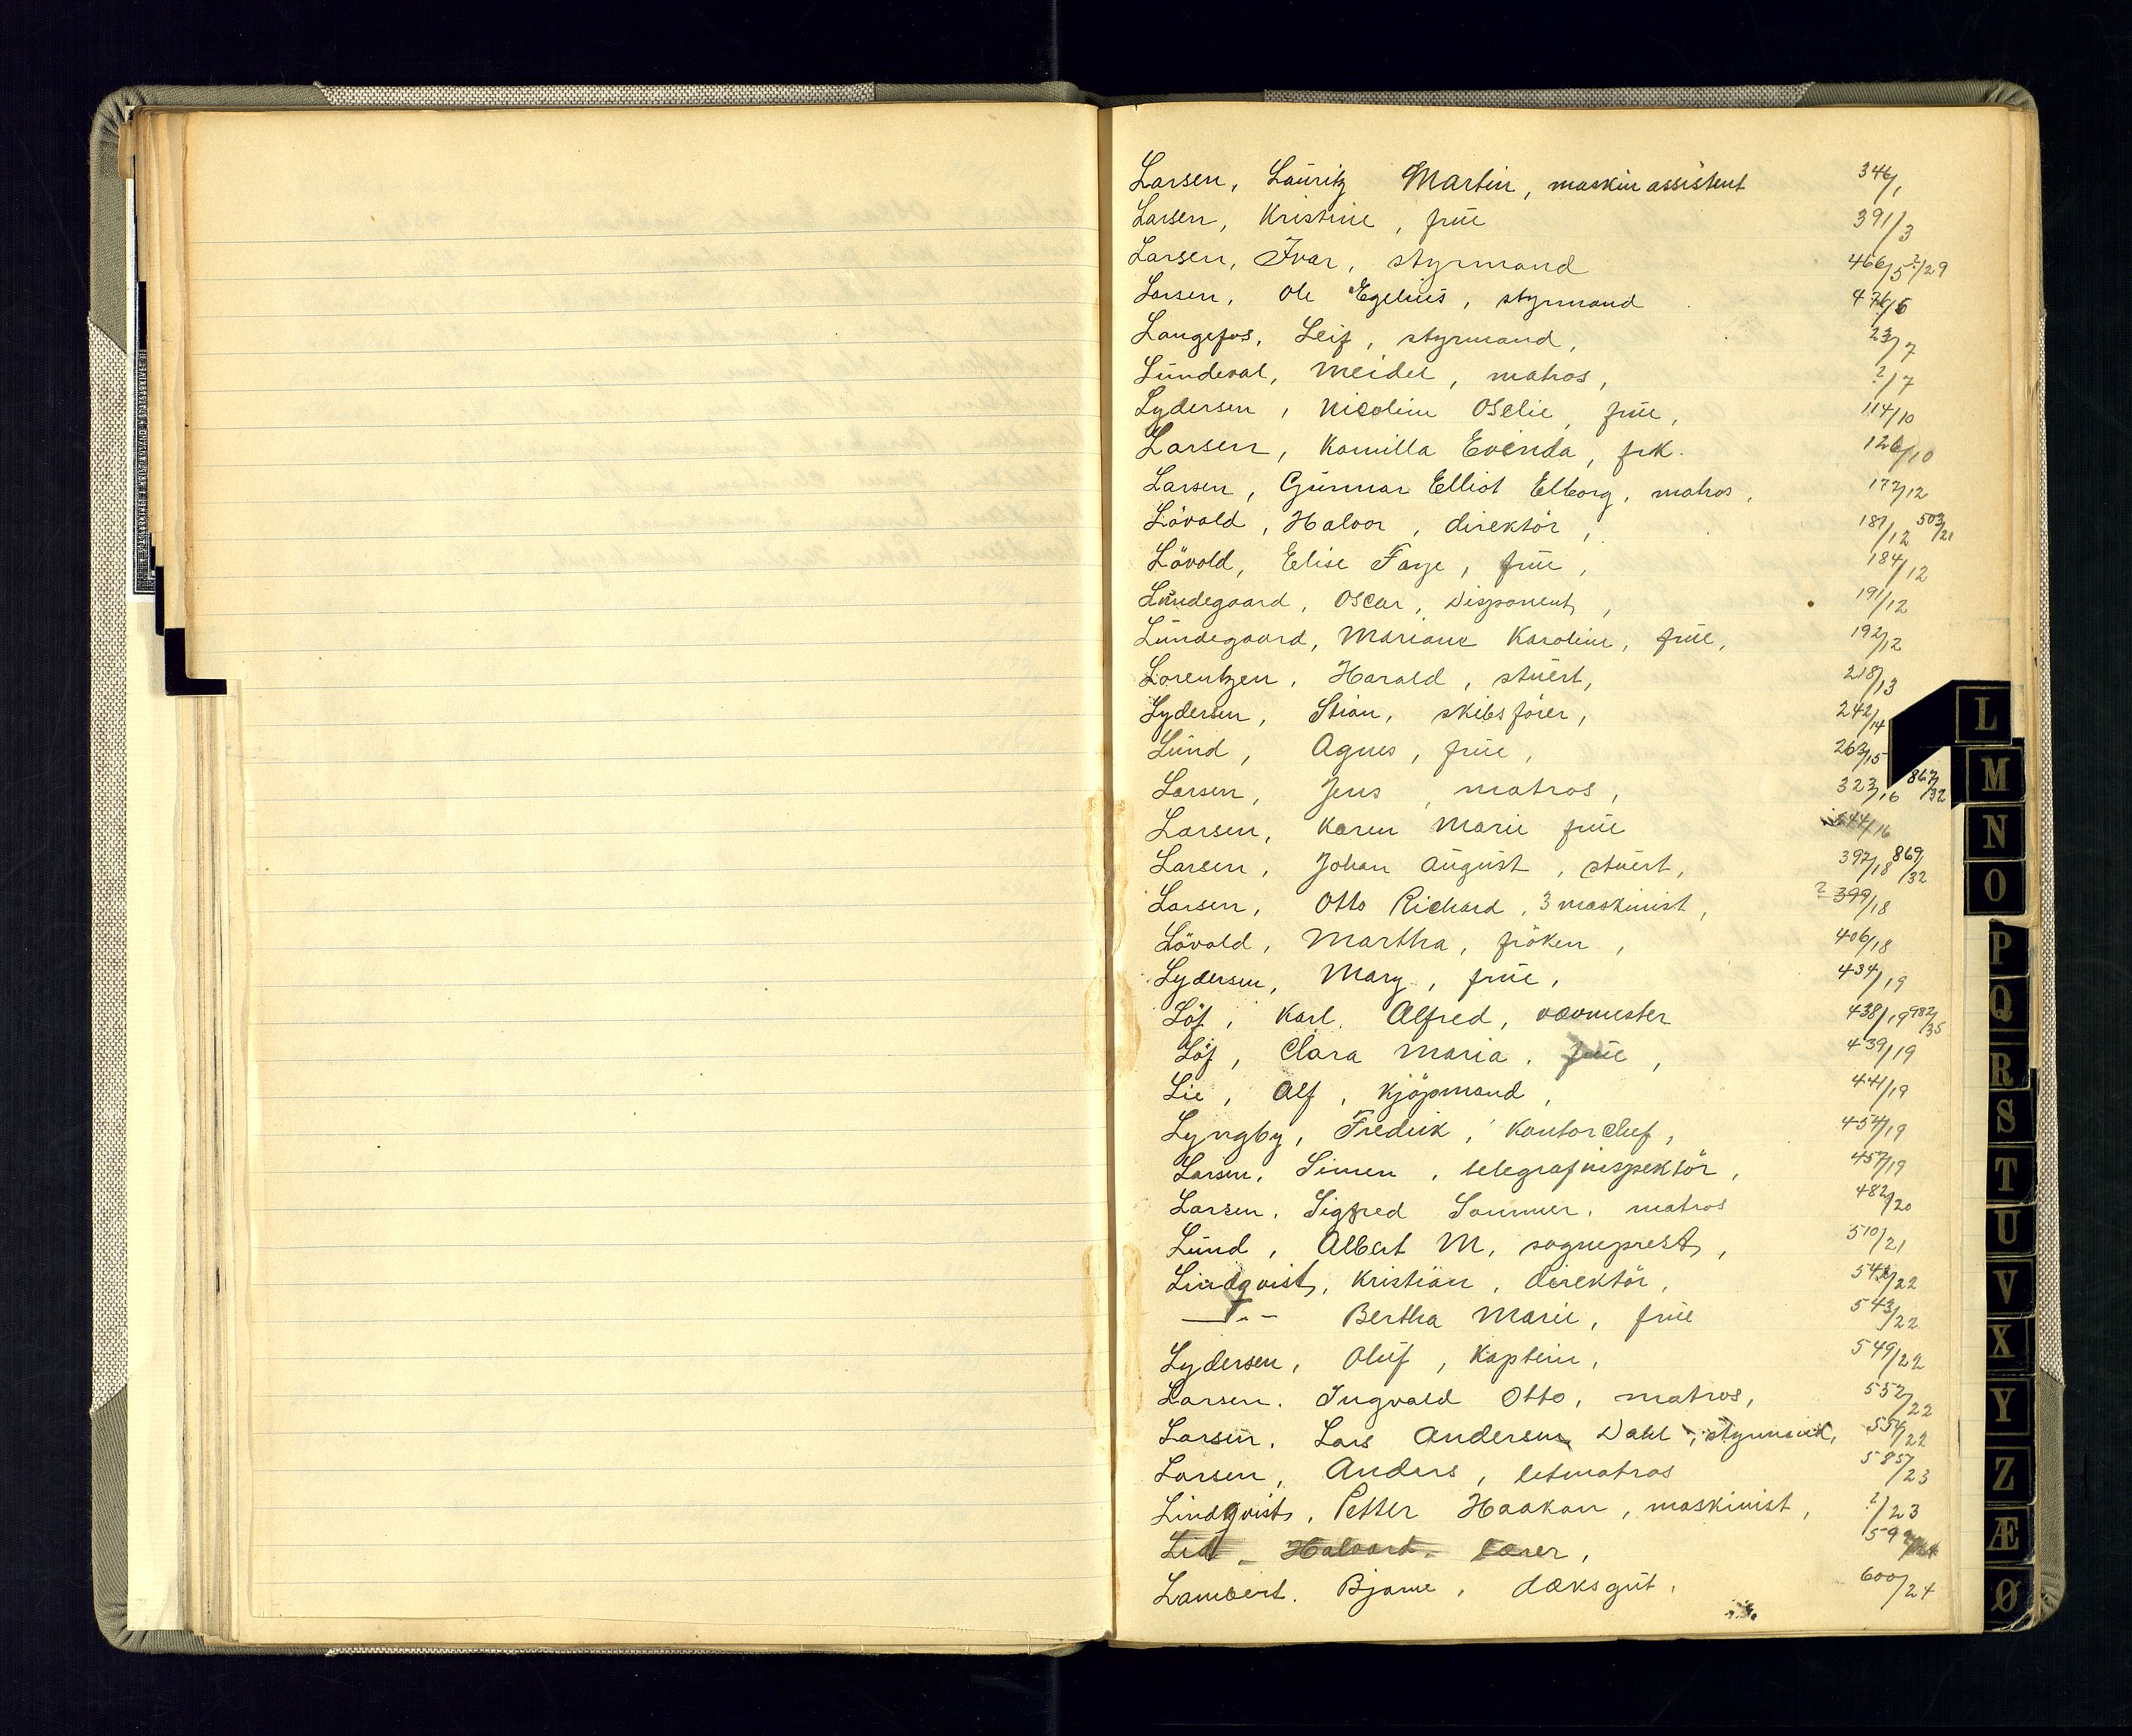 Larsen, Lauritz Martin, maskinassistent 346/1
Larsen, Kristine, frue 391/3
Larsen, Ivar, styrmand 466/5 ?/29
Larsen, Ole Egelius, styrmand 476/6
Langefos, Leif, styrmand, 23/7
Lundeval, Meidel, matros, ?/7
Lydersen, Nicoline Oselie, frue, 114/10
Larsen, Kamilla Evenda, frk. 126/10
Larsen, Gunnar Elliot Elborg, matros, 177/12
Lövold, Halvor, direktör, 181/12 503/21
Lövold, Elise Faye, frue, 184/12
Lundegaard, Oscar, Disponent, 191/12
Lundegaard, Mariane Karoline, frue, 192/12
Lorentzen, Harald, stuert, 218/13
Lydersen, Stian, skibsförer, 242/14
Lund, Agnes, frue, 263/15
Larsen, Jens, matros, 323/16 867/32
Larsen, Karen Marie frue 344/16
Larsen, Johan August, stuert, 397/18 869/32
Larsen, Otto Richard, 3 maskinist, ? 399/18
Lövold, Martha, fröken, 406/18
Lydersen, Mary, frue, 434/19
Löf, Karl Alfred, vævmester 438/19 982/35
Löf, Clara Maria, frue, 439/19
Lie, Alf, Kjöpmand, 441/19
Lyngby, Fredrik, Kontorchef, 454/19
Larsen, Simen, telegrafinspektör, 457/19
Larsen, Sigfred Sommer, matros 482/20
Lund, Albert M, sogneprest, 510/21
Lindqvist, Kristian, direktör, 542/22
—"— Bertha Marie, frue 543/22
Lydersen, Oluf, Kaptein, 549/22
Larsen, Ingvald Otto, matros, 552/22
Larsen, Lars Andersen Dahl, styrmand, 554/22
Larsen, Anders, letmatros 585/23
Lindqvist, Petter Haakon, maskinist, ?/23
Lid, Halvard, lærer, 599/24
Lambert, Bjarne, dæksgut, 600/24
L
M
N
O
P
Q
R
S
T
U
V
X
Y
Z
Æ
Ø